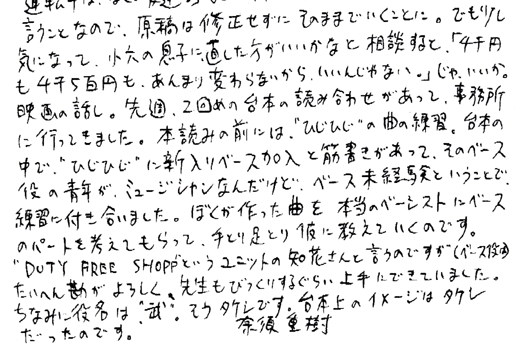 言うことなので、原稿は修正せずにそのままでいくことに。でも少し
気になって、小六の息子に直した方がいいかなと相談すると、「4千円
も4千5百円も、あんまり変わらないから、いいんじゃない。」じゃ、いいか。
映画の話し。先週、2回めの台本の読み合わせがあって、事務所
に行ってきました。本読みの前には、“ひじひじ”の曲の練習。台本の
中で、“ひじひじ”に新入りベース加入と筋書きがあって、そのベース
役の青年が、ミュージシャンなんだけど、ベース未経験ということで、
練習に付き合いました。ぼくが作った曲を本当のベーシストにベース
のパートを考えてもらって、手とり足とり彼に教えていくのです。
“DUTY FREE SHOPP”というユニットの知花さんと言うのですが(ベース役の)
たいへん勘がよろしく、先生もびっくりするぐらい上手にできていました。
ちなみに役名は“武”。そうタケシです。台本上のイメージはタケシ
だったのです。 奈須重樹